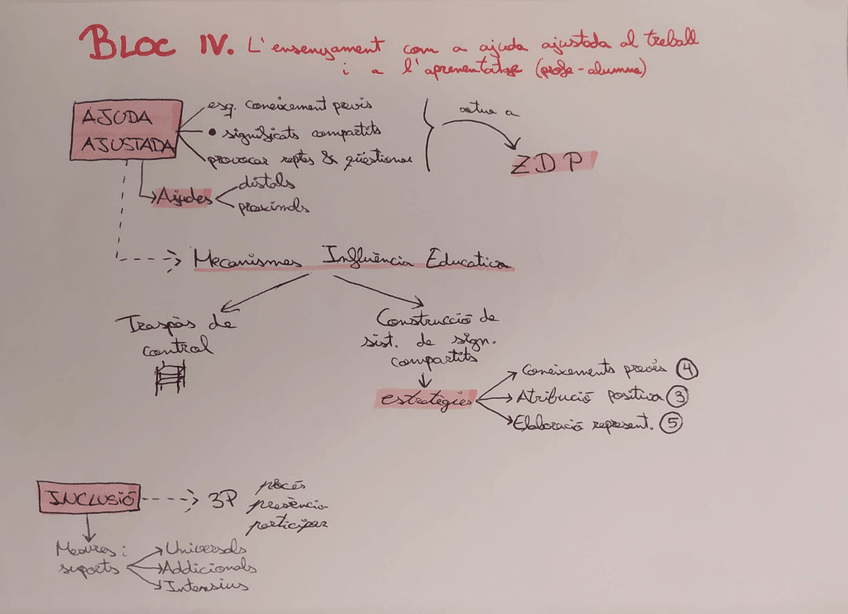 BLOC IV. L'ensenyament com a ajuda ajustada al treball
i a l'aprenentatge (profe-alumne)
AJUDA
AJUSTADA
esq. coneixement previs
• significats compartits
provocar reptes & qüestionar
actua a
ZDP
Ajudes
distals
proximals
Mecanismes Influència Educativa
Traspàs de
control
Construcció de
sist. de sign.
compartits
estratègies
Coneixements previs 4
Atribució positiva 3
Elaboració represent. 5
INCLUSIÓ
3P
procés
presència
participar
Mesures i
suports
Universals
Addicionals
Intensius